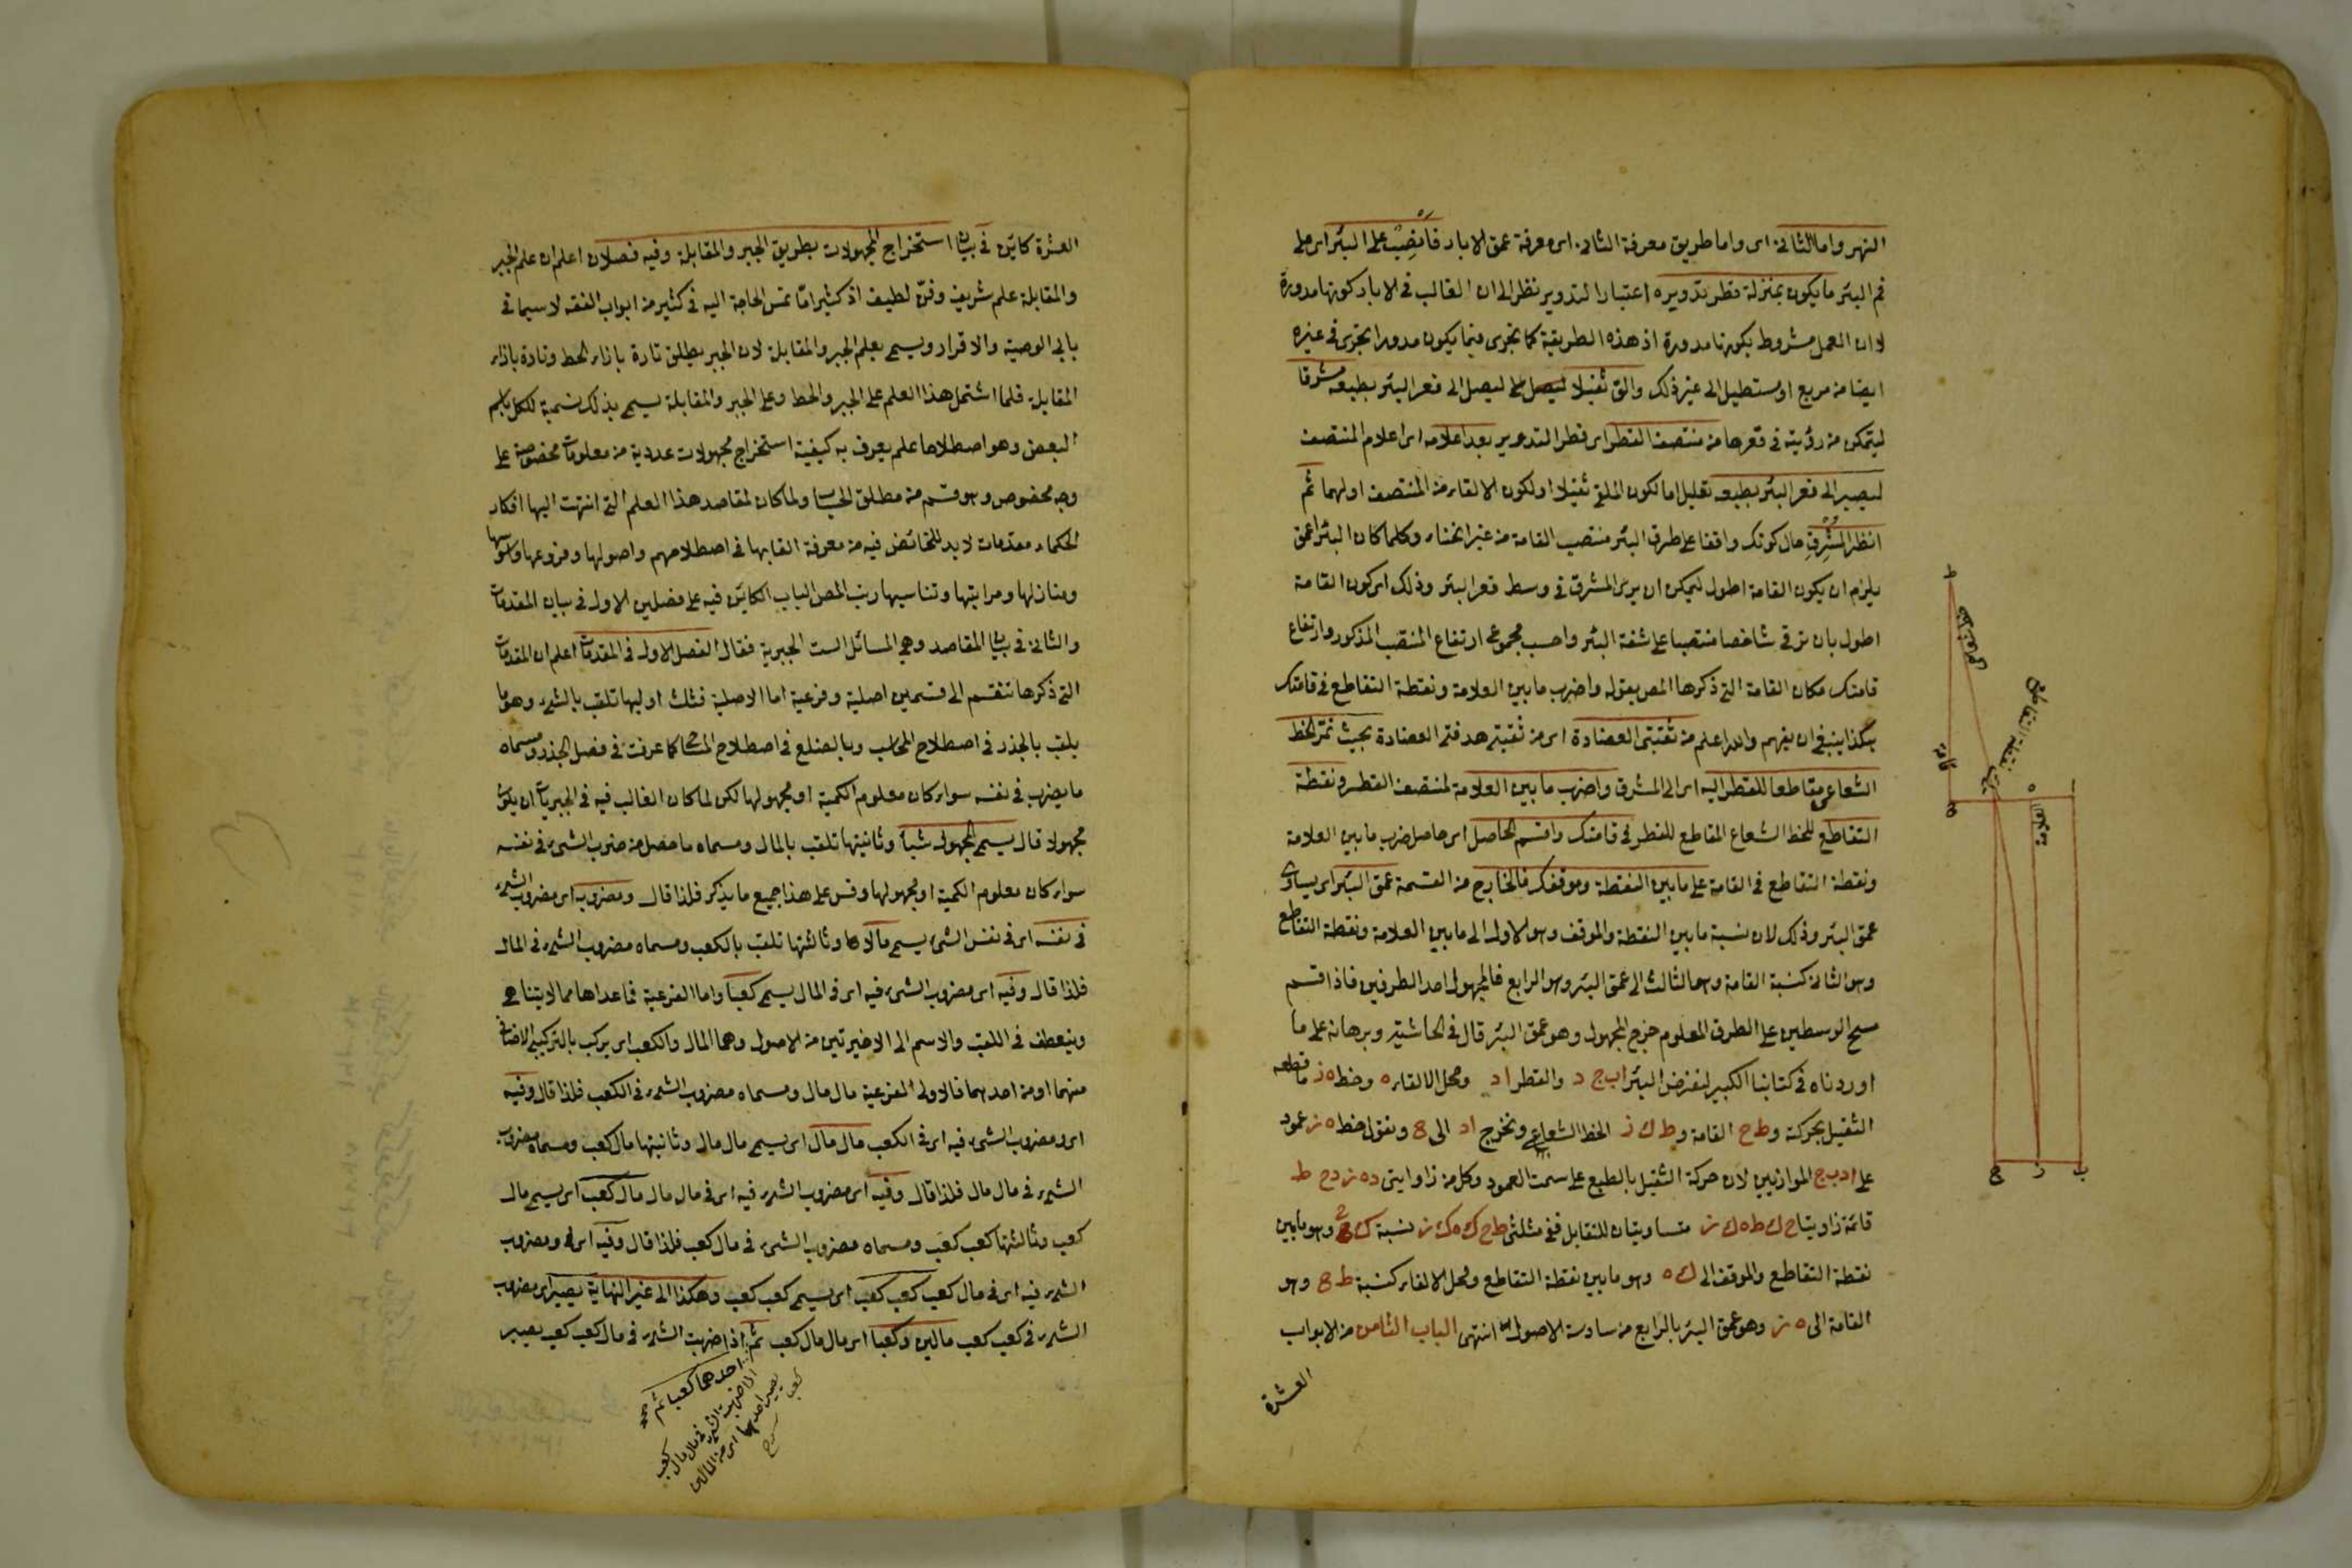 النهر واما الثانى اى واما طريق معرفة الثانى اى معرفة عمق الابار فانصب على البئر اى على
فم البئر ما يكون بمنزلة قطر تدويره اعتبار التدوير نظرا الى ان الغالب فى الابار كونها مدورة
لا ان العمل مشروط بكونها مدورة اذ هذه الطريقة كما تجرى فيما يكون مدورا تجرى فى غيره
ايضا من مربع او مستطيل الى غير ذلك والق ثقيلا ليصل الى قعر البئر بطبعه مشرقا
ليتمكن من رؤيته فى قعرها من منتصف القطر اى قطر التدوير بعد اعلامه اى اعلام المنتصف
ليصير الى قعر البئر بطبعه تعليل اما لكون الملقى ثقيلا او لكون الالقاء من المنتصف او لهما ثم
انظر المشرق حال كونك واقفا على طرف البئر منتصب القامة من غير انحناء وكلما كان البئر اعمق
يلزم ان يكون القامة اطول ليمكن ان يرى المشرق فى وسط قعر البئر وذلك اى كون القامة
اطول بان ترقى شاخصا منتصبا على شفة البئر واحسب مجموع ارتفاع المنتصب المذكور وارتفاع
قامتك مكان القامة التى ذكرها المص بقوله واضرب ما بين العلامة ونقطة التقاطع فى قامتك
هكذا ينبغى ان يفهم والله اعلم من ثقبتى العضادة اى من ثقبتى هدفتى العضادة بحيث تمر الخط
الشعاعى مقاطعا للقطر اليه اى الى المشرق واضرب ما بين العلامة لمنتصف القطر ونقطة
التقاطع للخط الشعاع المقاطع للقطر فى قامتك واقسم الحاصل اى حاصل ضرب ما بين العلامة
ونقطة التقاطع فى القامة على ما بين النقطة وموقفك فالخارج من القسمة عمق البئر اى يساوى
عمق البئر وذلك لان نسبة ما بين النقطة والموقف وهو الاول الى ما بين العلامة ونقطة التقاطع
وهو الثانى كنسبة القامة وهو الثالث الى عمق البئر وهو الرابع فالمجهول احد الطرفين فاذا قسم
مسطح الوسطين على الطرف المعلوم خرج المجهول وهو عمق البئر قال فى الحاشية وبرهانه على ما
اوردناه فى كتابنا الكبير لنفرض البئر ا ب ج د والقطر ا د ومحل الالقاء ه وخط ه ز ما قطعه
الثقيل بحركته و ط ح القامة و ط ك ز الخط الشعاعى ونخرج ا د الى ح ونقول خط ه ز عمود
على ا د ب ج الموازيين لان حركة الثقيل بالطبع على سمت العمود وكل من زاوايتى د ه ز د ح ط
قائمة زاويتا ح ك ط ه ك ز متساويتان للتقابل ففى مثلثى ط ح ك ه ك ز نسبة ك ح وهو ما بين
نقطة التقاطع والموقف الى ك ه وهو ما بين نقطة التقاطع ومحل الالقاء كنسبة ط ح وهو
القامة الى ه ز وهو عمق البئر بالرابع من سادسة الاصول انتهى الباب الثامن من الابواب
العشرة
ط
القامة
نقطة التقاطع
العلامة
ح
ه
ا
ج
ز
ب
العشرة كائن فى بيان استخراج المجهولات بطريق الجبر والمقابلة وفيه فصلان اعلم ان علم الجبر
والمقابلة علم شريف وفن لطيف اذ كثيرا ما تمس الحاجة اليه فى كثير من ابواب الفقه لا سيما فى
بابى الوصية والاقرار ويسمى بعلم الجبر والمقابلة لان الجبر يطلق تارة بازاء الحط وتارة بازاء
المقابلة فلما اشتمل هذا العلم على الجبر والحط وعلى الجبر والمقابلة يسمى بذلك تسمية للكل باسم
البعض وهو اصطلاحا علم يعرف به كيفية استخراج مجهولات عددية من معلومات مخصوصة على
وجه مخصوص وهو قسم من مطلق الحساب ولما كان لمقاصد هذا العلم التى انتهت اليها افكار
الحكماء مقدمات لا بد للخائض فيه من معرفة القابها فى اصطلاحهم واصولها وفروعها واسوسها
ومنازلها ومراتبها وتناسبها رتب المص الباب الكائن فيه على فصلين الاول فى بيان المقدمات
والثانى فى بيان المقاصد وهى المسائل الست الجبرية فقال الفصل الاول فى المقدمات اعلم ان المقدمات
التى ذكرها تنقسم الى قسمين اصلية وفرعية اما الاصلية فثلث اوليها تلقب بالشىء وهو ما
يلقب بالجذر فى اصطلاح المحاسب وبالضلع فى اصطلاح المساحى كما عرفت فى فصل الجذر ومسماه
ما يضرب فى نفسه سواء كان معلوم الكمية او مجهولها لكن لما كان الغالب فيه فى الجبريات ان يكون
مجهولا قال يسمى المجهول شيئا وثانيتها تلقب بالمال ومسماه ما حصل من ضرب الشىء فى نفسه
سواء كان معلوم الكمية او مجهولها وقس على هذا جميع ما يذكر فلذا قال ومضروبه اى مضروب الشىء
فى نفسه اى فى نفس الشىء يسمى مالا وثالثتها تلقب بالكعب ومسماه مضروب الشىء فى المال
فلذا قال وفيه اى مضروب الشىء فيه اى فى المال يسمى كعبا واما الفرعية فما عداها مما لا يتناهى
وينعطف فى اللقب والاسم الى الاخيرتين من الاصول وهما المال والكعب اى يركب بالتركيب الاضافى
منهما او من احدهما فالاولى الفرعية مال مال ومسماه مضروب الشىء فى الكعب فلذا قال وفيه
اى ومضروب الشىء فيه اى فى الكعب مال مال اى يسمى مال مال وثانيتها مال كعب ومسماه مضروب
الشىء فى مال مال فلذا قال وفيه اى مضروب الشىء فيه اى فى مال مال مال كعب اى يسمى مال
كعب وثالثتها كعب كعب ومسماه مضروب الشىء فى مال كعب فلذا قال وفيه اى ومضروب
الشىء فيه اى فى مال كعب كعب كعب اى يسمى كعب كعب وهكذا الى غير النهاية يصير اى مضروب
الشىء فى كعب كعب مالين وكعبا اى مال مال كعب ثم اذا ضربت الشىء فى مال كعب كعب يصير
احدهما كعبا ثم
اذا ضربت الشىء فى مال مال كعب
يصير احدهما اى من المالين
كعبا